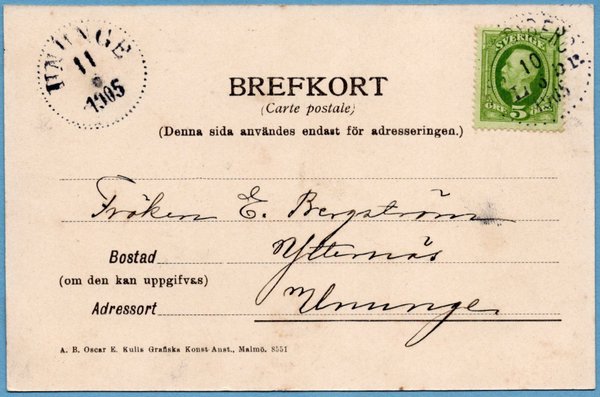 UNUNGE
11
1905
SVERIGE
10
1905
ÖRE 5
BREFKORT
(Carte postale)
(Denna sida användes endast för adresseringen.)
Fröken E. Bergström
Bostad Ytternäs
(om den kan uppgifvas)
Adressort Ununge
A. B. Oscar E. Kulls Grafiska Konst-Anst., Malmö. 8551